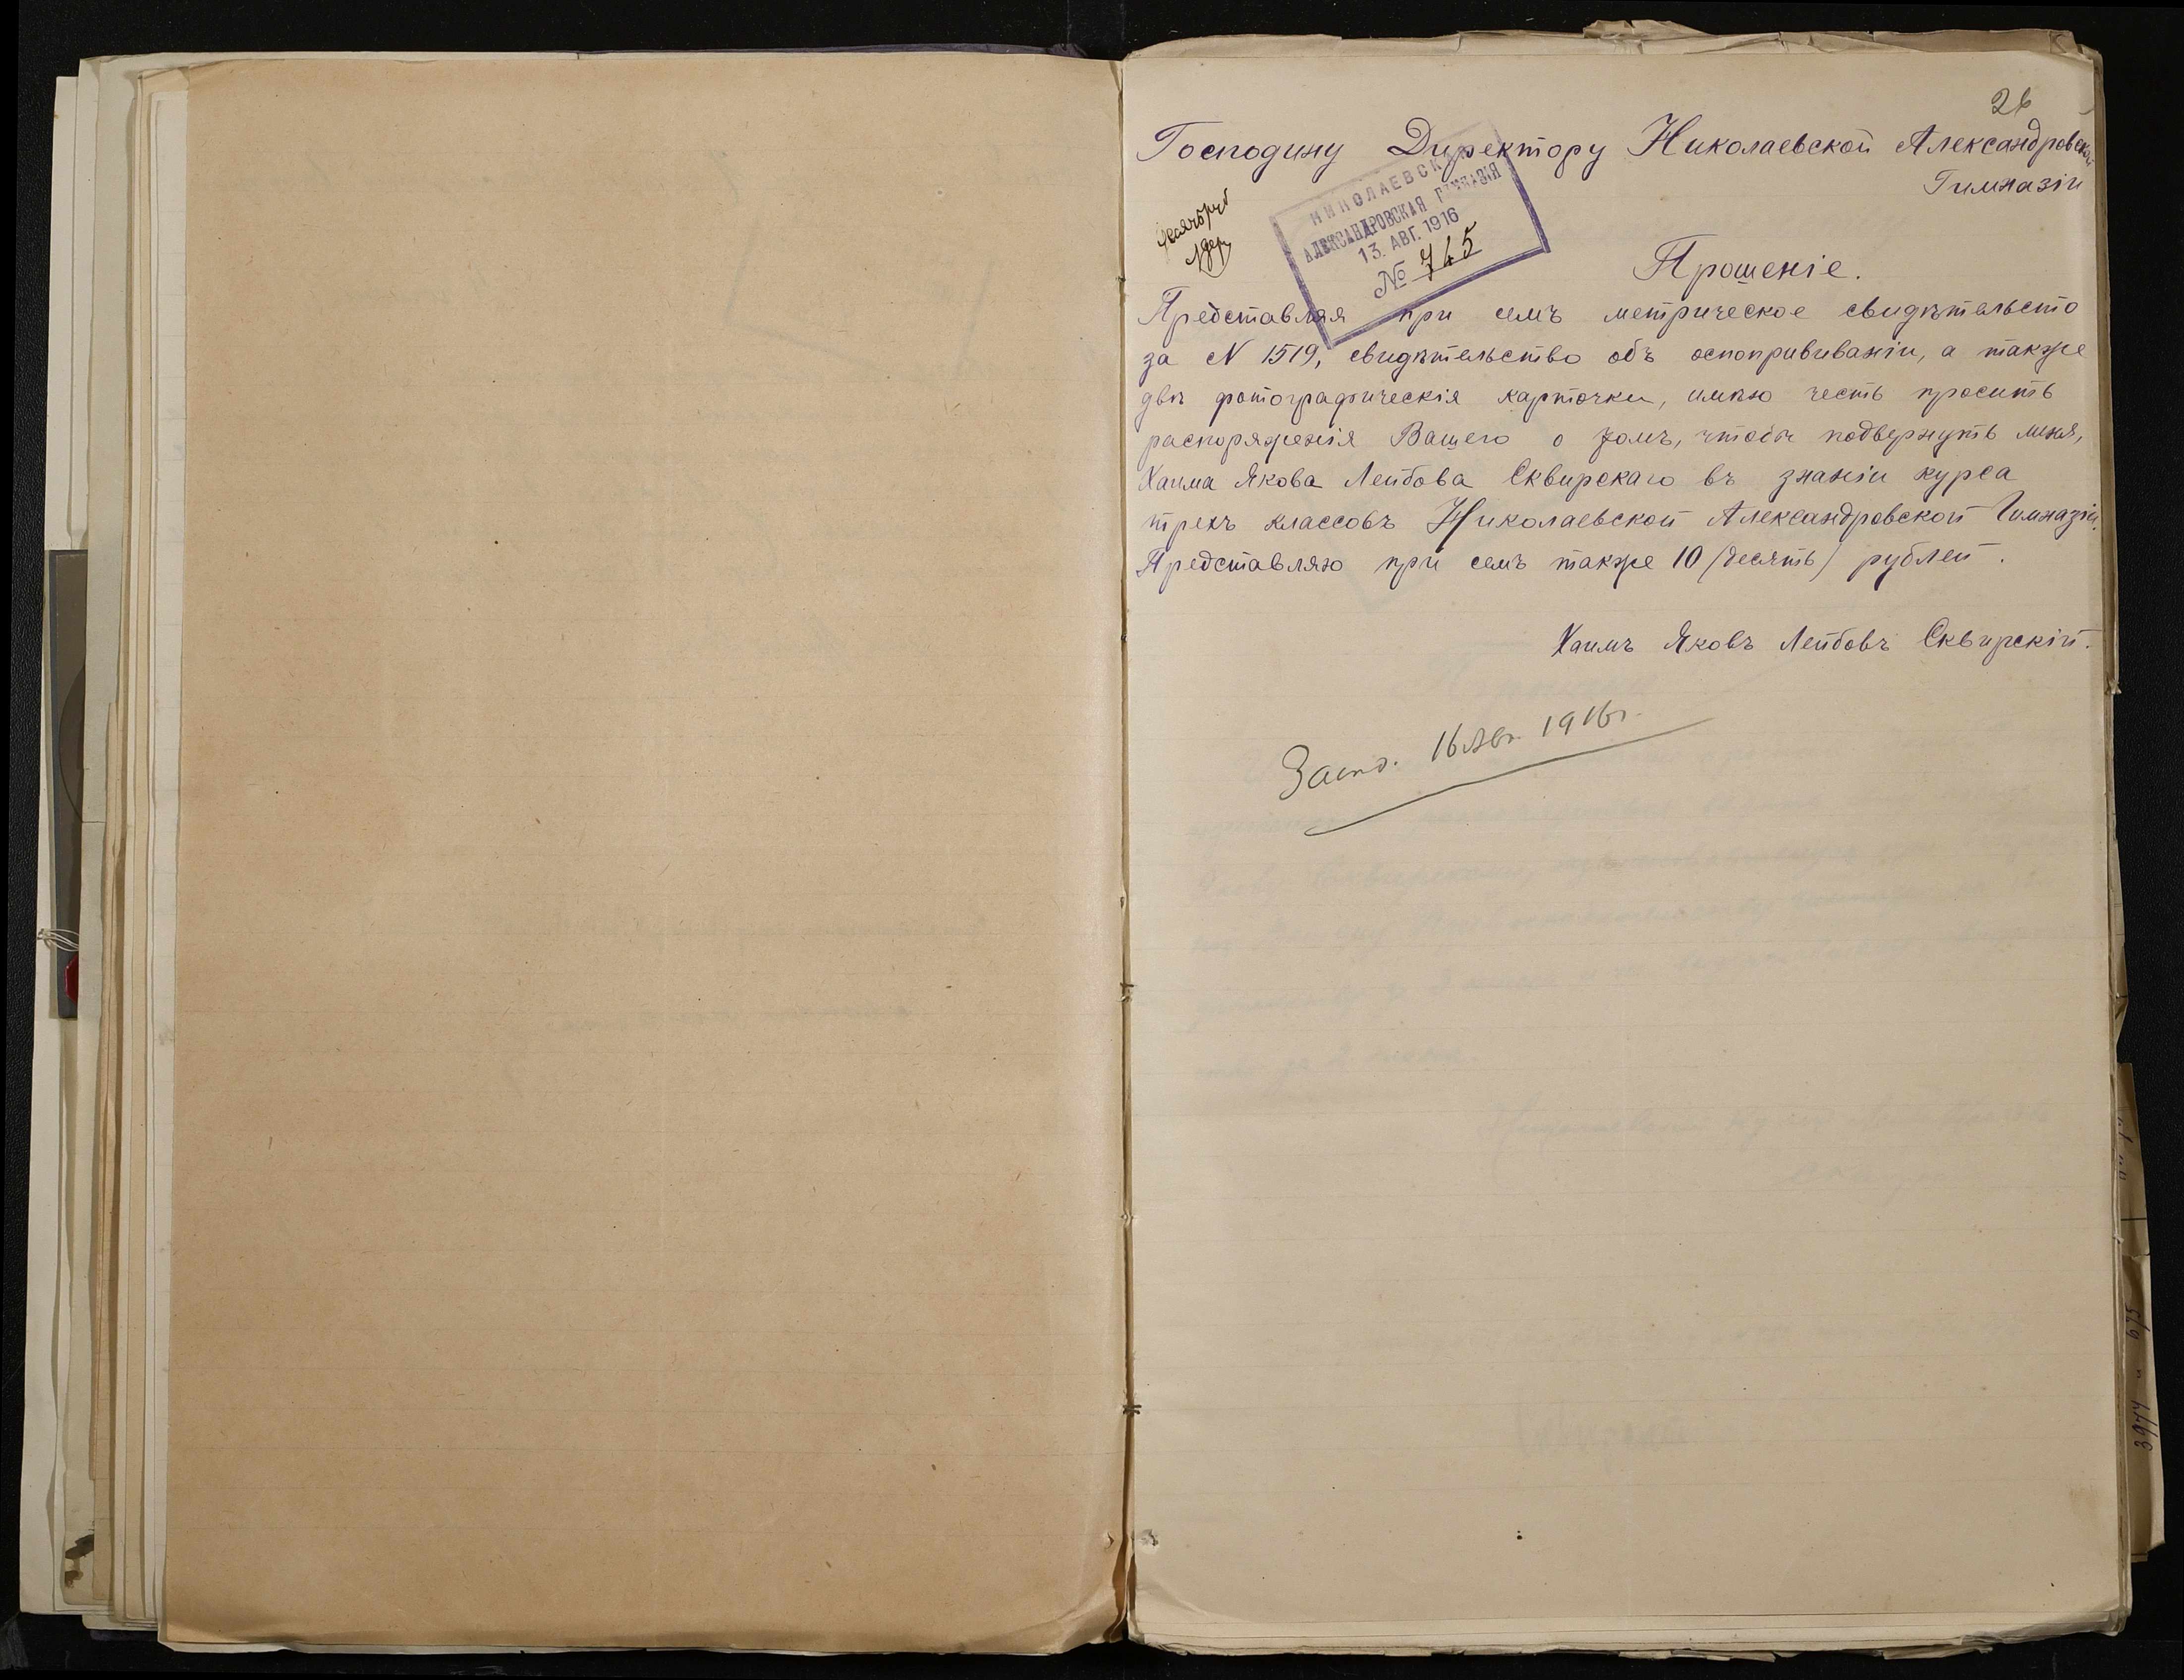 26
Господину Директору Николаевской Александровской
Гимназіи
НИКОЛАЕВСКАЯ
АЛЕКСАНДРОВСКАЯ ГИМНАЗІЯ
13. АВГ. 1916
№ 745
Прошеніе.
Представляя при семъ метрическое свидѣтельсто
за N 1519, свидѣтельство объ оспопрививаніи, а также
двѣ фотографическія карточки, имѣю честь просить
распоряженія Вашего о томъ, чтобы подвергнуть меня,
Хаима Якова Лейбова Сквирскаго въ знаніи курса
трехъ классовъ Николаевской Александровской Гимназіи.
Представляю при семъ также 10 (десять) рублей.
Хаимъ Яковъ Лейбовъ Сквирскій.
16 Авг. 1916г.
3977 и 675